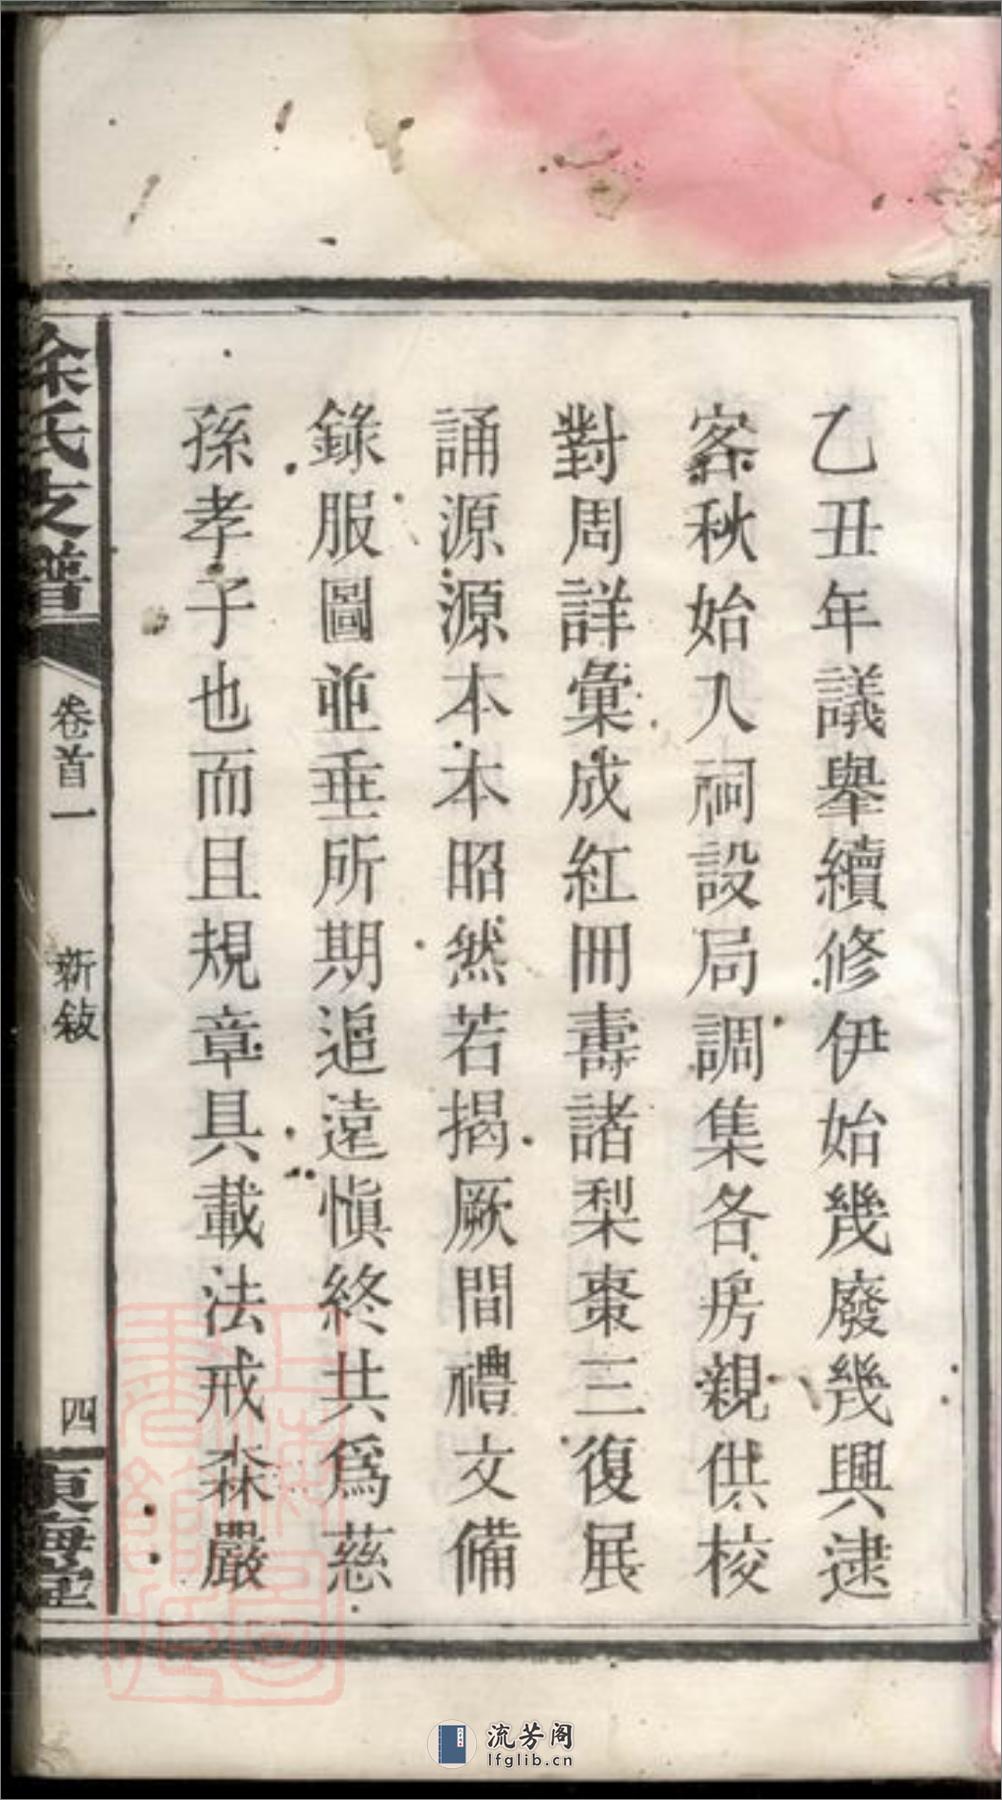 乙丑年議舉續修伊始幾廢幾興逮
客秋始入祠設局調集各房親供校
對周詳彙成紅冊壽諸梨棗三復展
誦源源本本昭然若揭厥間禮文備
錄服圖並垂所期追遠愼終共爲慈
孫孝子也而且規章具載法戒森嚴
徐氏支譜
卷首一
新敍
四
東海堂
上海圖書館藏
流芳阁
lfglib.cn